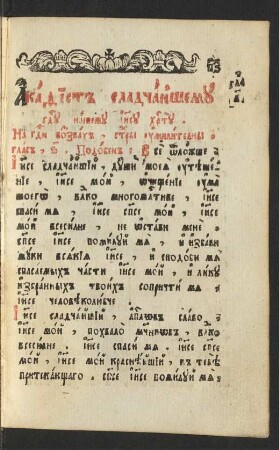 Акаѳїстъ сладчайшемꙋ
гдꙋ нашемꙋ іс҃ꙋ хр҃тꙋ.
На гдⷭ҇и воззвахъ, стⷯры ᲂумилителны
гласъ, Подобенъ:
Іи҃се сладчайшїй, дꙋши моеѧ ᲂутѣше
нїе, іи҃се мой, ѡчищенїе ᲂума
моегѡ, влⷣко многомлⷭ҇тиве, іи҃се
спаси мѧ, іи҃се сп҃се мой, іи҃се
мой всесилне, не ѡстави мене,
сп҃се іи҃се помилꙋй мѧ, и избави
мꙋки всѧкїѧ іи҃се, и сподоби мѧ
спасаемыхъ части іи҃се мой, и ликꙋ
избранныхъ твоихъ сопричти мѧ
іи҃се человѣколюбче.
Іи҃се сладчайшїй, апⷭ҇лѡвъ славо,
іи҃се мой, похвало мч҃никѡвъ, влⷣко
всесилне, іи҃се спаси мѧ, іи҃се сп҃се
мой, іи҃се мой краснѣйшїй, къ тебѣ
притекающаго, сп҃се іи҃се помилꙋй мѧ